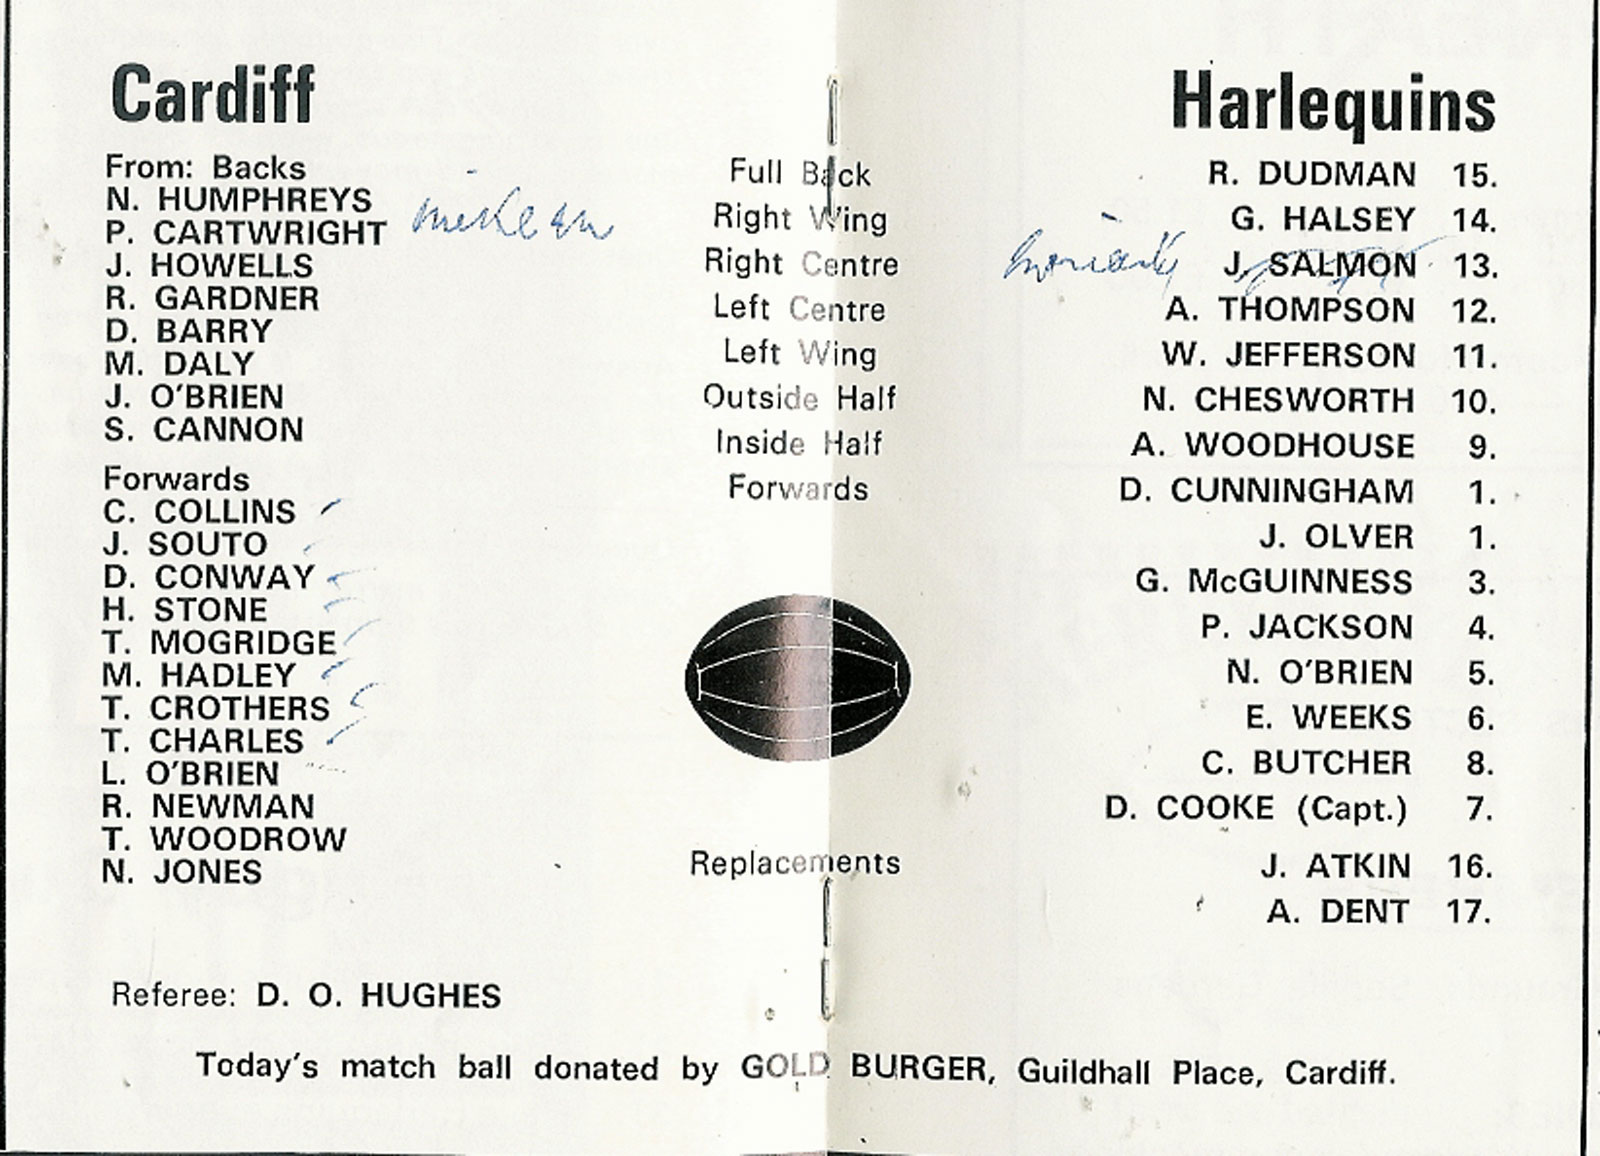 Cardiff
From: Backs
N. HUMPHREYS
P. CARTWRIGHT
J. HOWELLS
R. GARDNER
D. BARRY
M. DALY
J. O'BRIEN
S. CANNON
Forwards
C. COLLINS
J. SOUTO
D. CONWAY
H. STONE
T. MOGRIDGE
M. HADLEY
T. CROTHERS
T. CHARLES
L. O'BRIEN
R. NEWMAN
T. WOODROW
N. JONES
Referee: D. O. HUGHES
Full Back
Right Wing
Right Centre
Left Centre
Left Wing
Outside Half
Inside Half
Forwards
Replacements
Harlequins
R. DUDMAN 15.
G. HALSEY 14.
J. SALMON 13.
A. THOMPSON 12.
W. JEFFERSON 11.
N. CHESWORTH 10.
A. WOODHOUSE 9.
D. CUNNINGHAM 1.
J. OLVER 1.
G. McGUINNESS 3.
P. JACKSON 4.
N. O'BRIEN 5.
E. WEEKS 6.
C. BUTCHER 8.
D. COOKE (Capt.) 7.
J. ATKIN 16.
A. DENT 17.
Today's match ball donated by GOLD BURGER, Guildhall Place, Cardiff.